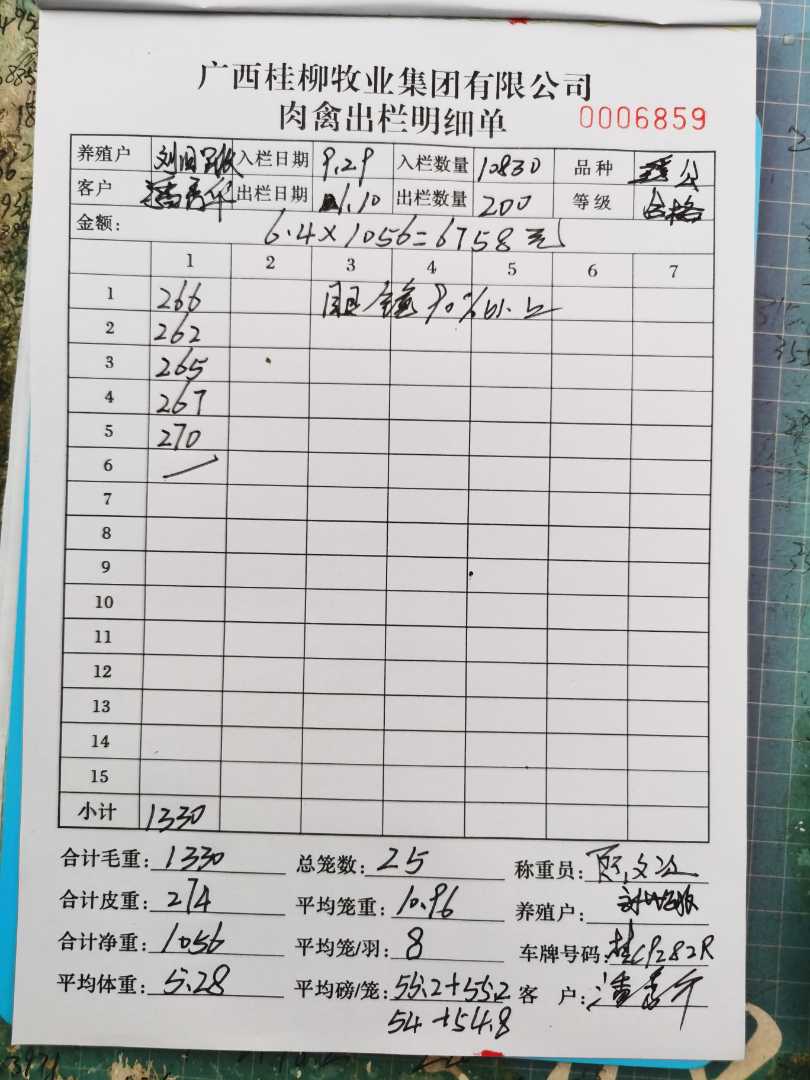 广西桂柳牧业集团有限公司
肉禽出栏明细单 0006859
养殖户 入栏日期 9.29 入栏数量 10830 品种 公
客户 出栏日期 1.10 出栏数量 200 等级 合格
金额: 6.4×1056=6758元
1 2 3 4 5 6 7
1 266 90%以上
2 262
3 265
4 267
5 270
6
7
8
9
10
11
12
13
14
15
小计 1330
合计毛重: 1330 总笼数: 25 称重员:
合计皮重: 274 平均笼重: 10.96 养殖户:
合计净重: 1056 平均笼/羽: 8 车牌号码: 桂CP282R
平均体重: 5.28 平均磅/笼: 55.2+55.2 客 户:
54+54.8